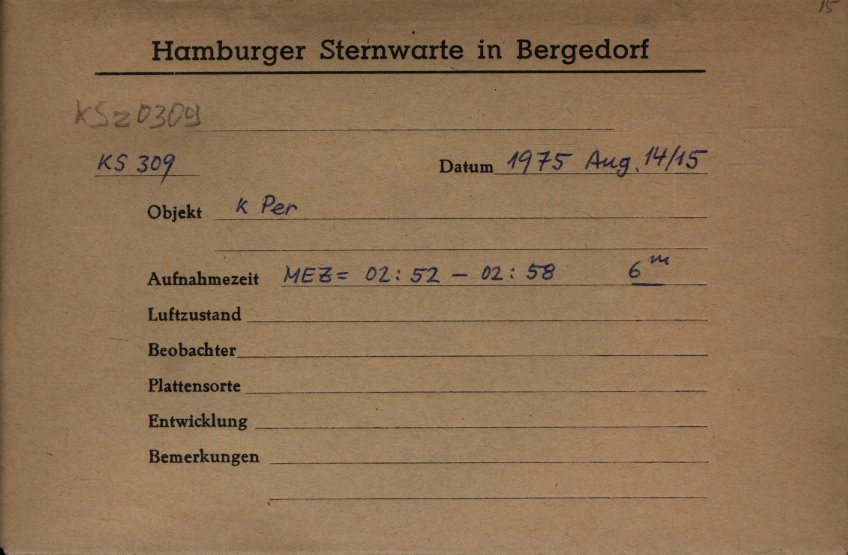 15
Hamburger Sternwarte in Bergedorf
KSz0309
KS 309 Datum 1975 Aug. 14/15
Objekt κ Per
Aufnahmezeit MEZ = 02:52 – 02:58 6ᵐ
Luftzustand
Beobachter
Plattensorte
Entwicklung
Bemerkungen